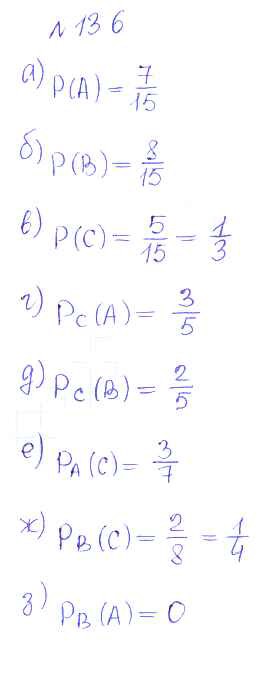 № 136
а) P(A) = 7/15
б) P(B) = 8/15
в) P(C) = 5/15 = 1/3
г) P_C(A) = 3/5
д) P_C(B) = 2/5
е) P_A(C) = 3/7
ж) P_B(C) = 2/8 = 1/4
з) P_B(A) = 0